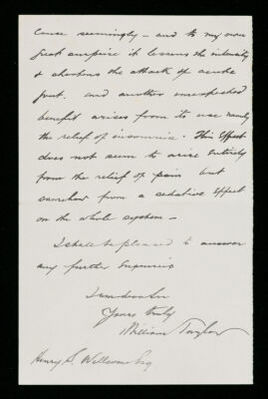 cause seemingly – and to my own
great surprise it lessens the intensity
& shortens the attack of acute
gout. and another unexpected
benefit arises from its use namely
the relief of insomnia. This Effect
does not seem to arise Entirely
from the relief of pain but
somehow from a sedative Effect
on the whole system –
I shall be pleased to answer
any further Enquiries
I am dear Sir
Yours truly
William Taylor
Henry S. Wellcome Esq